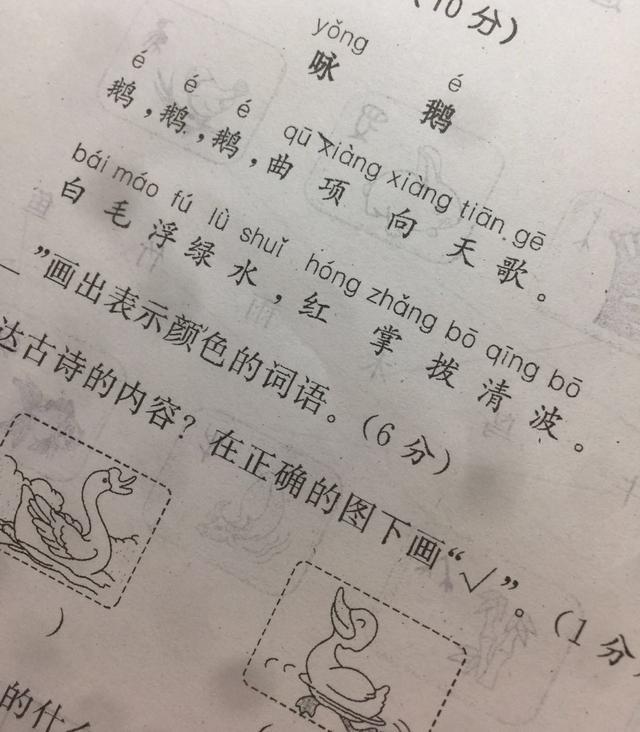 (10分)
yǒng é
咏 鹅
é é é qū xiàng xiàng tiān gē
鹅,鹅,鹅,曲项向天歌。
bái máo fú lǜ shuǐ hóng zhǎng bō qīng bō
白毛浮绿水,红掌拨清波。
”画出表示颜色的词语。(6分)
达古诗的内容?在正确的图下画“√”。(1分
)
(
的什么